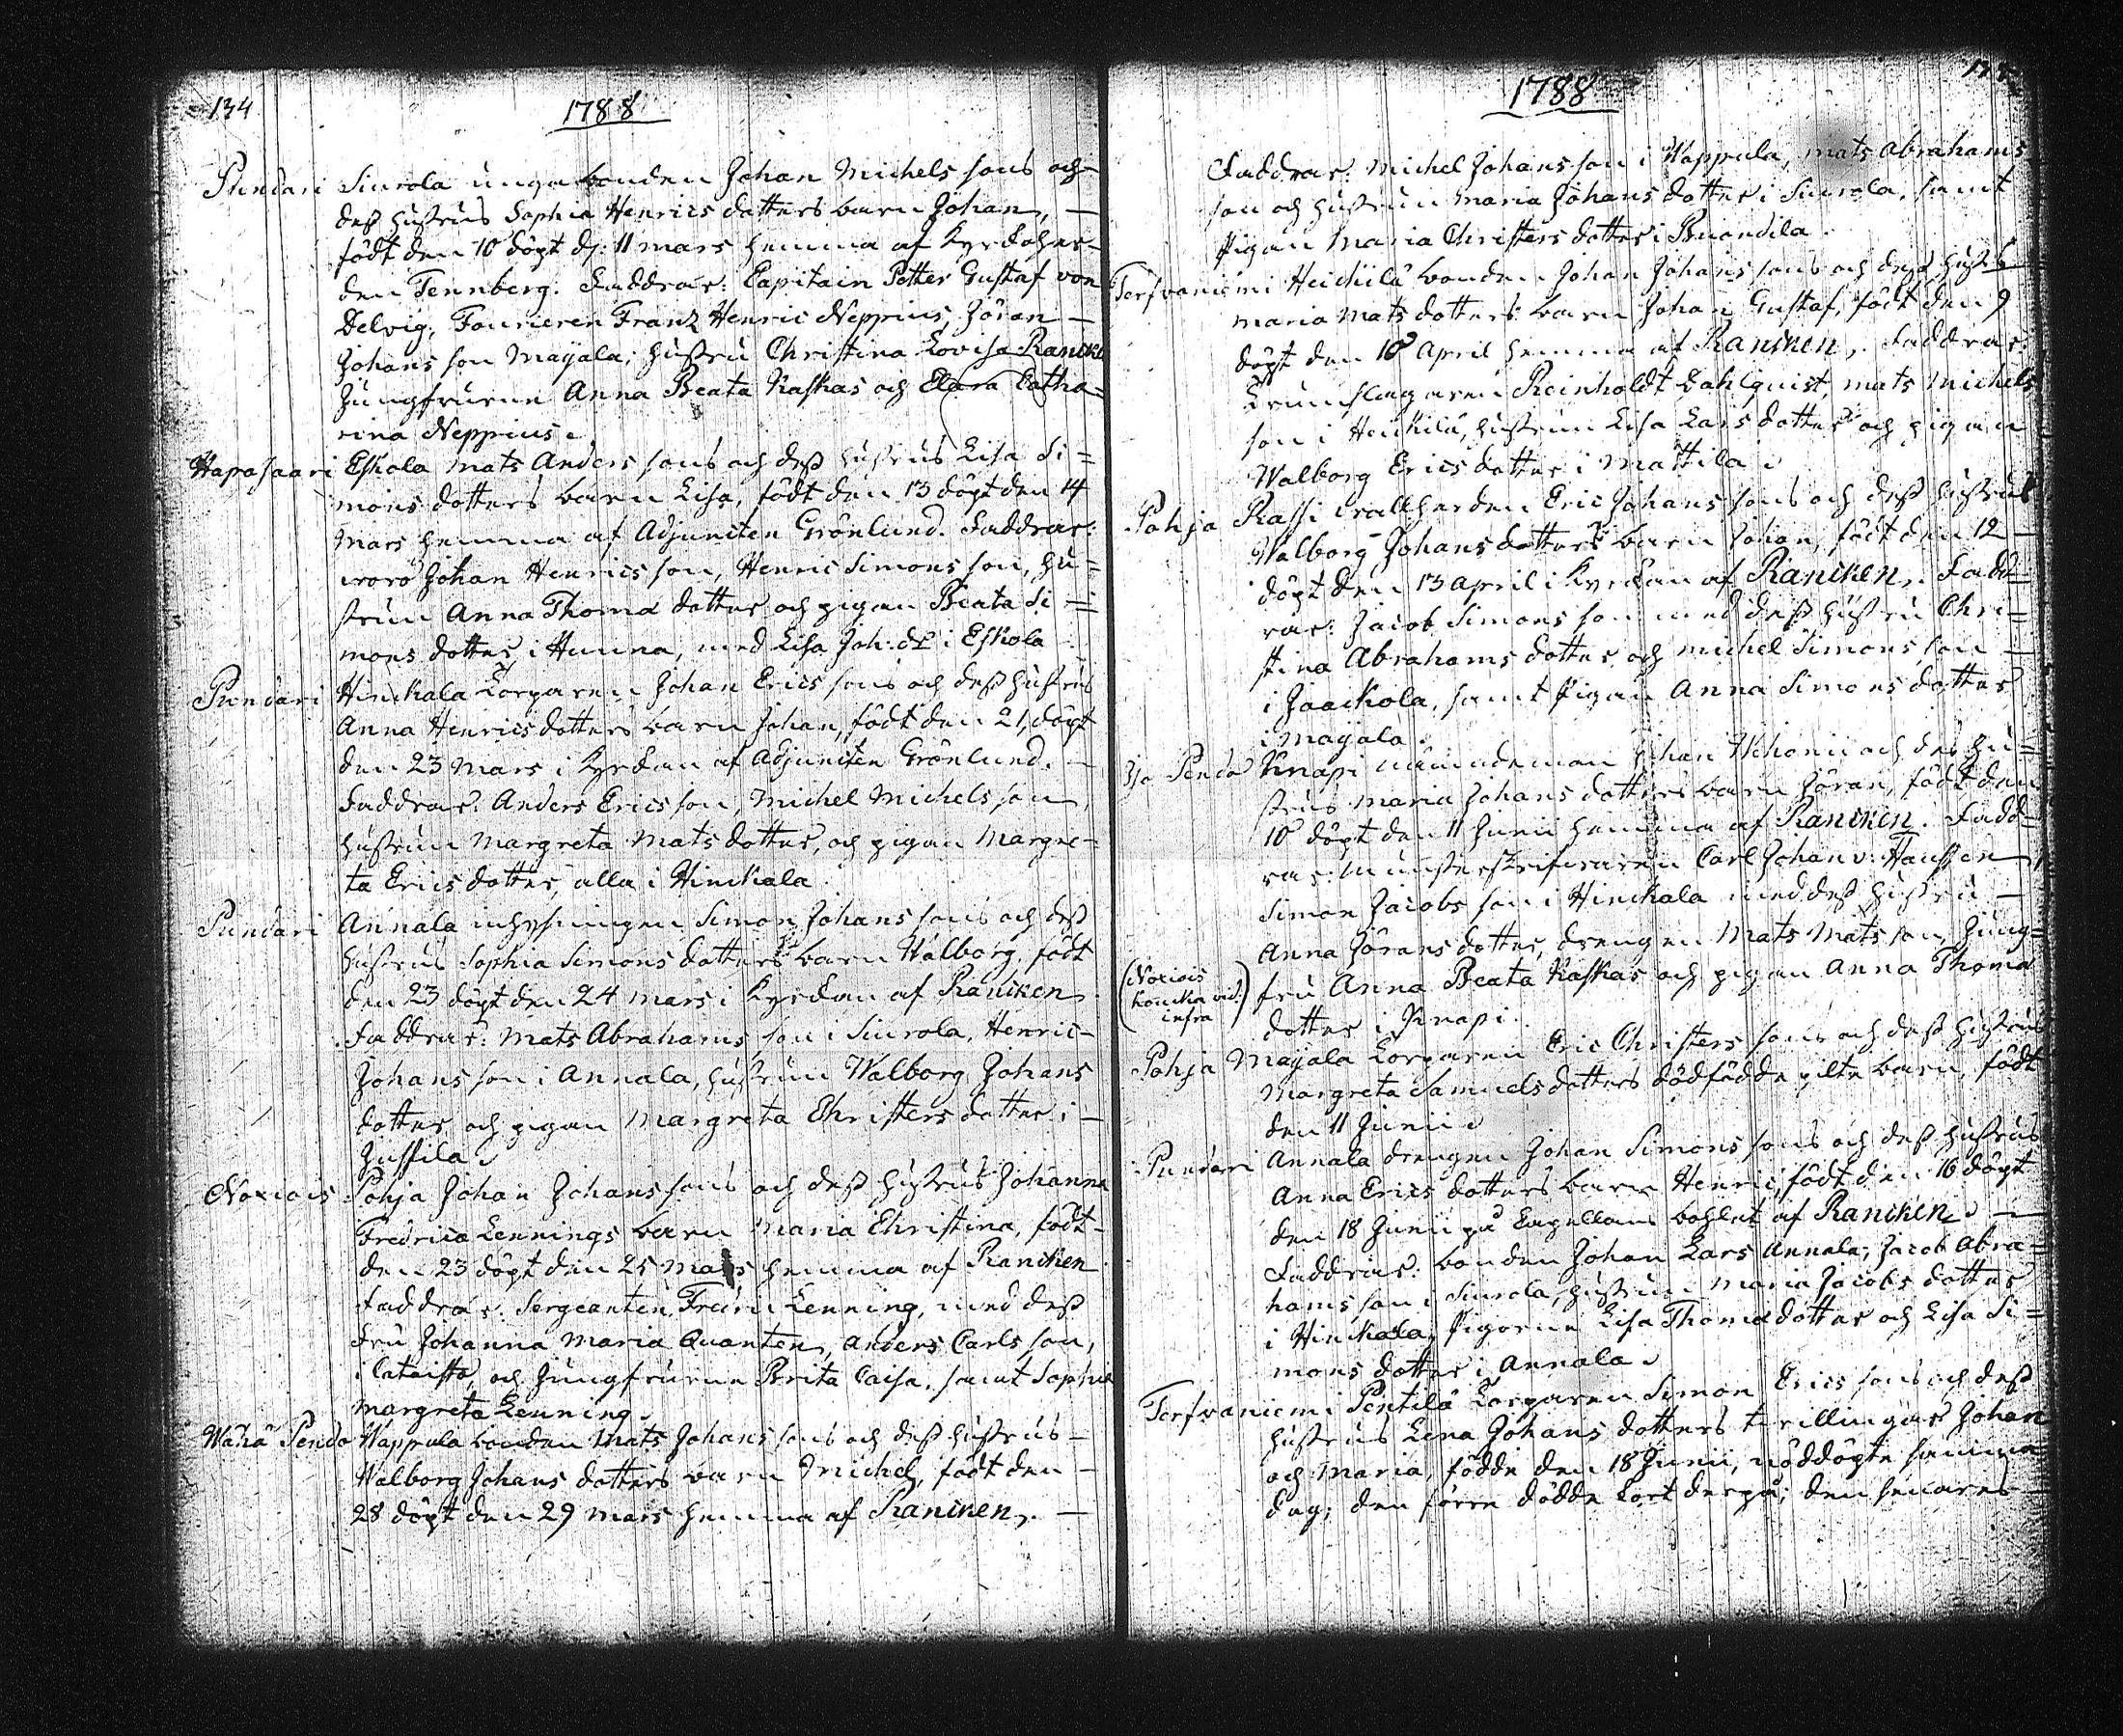 134
1788
Punkari Siurola unga bonden Johan Michels sons och
deß hustrus Sophia Henrics dotters barn Johan, —
födt den 10 döpt d: 11 mars hemma af Kyrkoher-
den Tennberg. Faddrar: Capitain Petter Gustaf von
Delvig, Fourieren Franz Henric Neppius, Jöran —
Johans son Mayala, hustru Christina Lovisa Rancken
Jungfrurne Anna Beata Kaskas och Clara Catha=
rina Neppius.
Hapasaari Eskola Mats Anders sons och deß hustrus Lisa Si=
mons dotters barn Lisa, födt den 13 döpt den 14
Mars hemma af Adjuncten Grönlund. Faddrar:
Johan Henrics son, Henric Simons son, hu=
strun Anna Thomæ dotter och pigan Beata Si=
mons dotter i Hunna, med Lisa Joh: dr i Eskola
Punkari Hinckala Torparen Johan Erics sons och deß hustrus
Anna Henrics dotters barn Johan, födt den 21, döpt
den 23 Mars i Kyrkan af Adjuncten Grönlund. —
Faddrar: Anders Erics son, Michel Michels son
hustrun Margreta Mats dotter, och pigan Margre=
ta Erics dotter, alla i Hinckala.
Punkari Annala inhysningen Simon Johans sons och deß
hustrus Sophia Simons dotters barn Walborg, födt
den 23 döpt den 24 mars i Kyrkan af Rancken
Faddrar: Mats Abrahams son i Siurola, Henric
Johans son i Annala, hustrun Walborg Johans
dotter och pigan Margreta Christers dotter i —
Jussila.
Noxiois Pohja Johan Johans sons och deß hustrus Johanna
Fredrica Lennings barn Maria Christina, födt
den 23 döpt den 25 Mars hemma af Rancken
Faddrar: Sergeanten Fredric Lenning, med deß
Fru Johanna Maria Quanten, Anders Carls son,
i Cataisto, och Jungfrurne Brita Caisa, samt Sophia
Margreta Lenning.
Wähä Pendo Wappula bonden Mats Johans sons och deß hustrus —
Walborg Johans dotters barn Michel, födt den —
28 döpt den 29 mars hemma af Rancken. —
1788
Faddrar: Michel Johans son i Wappula, Mats Abrahams
son och hustrun Maria Johans dotter i Siurola, samt
Pigan Maria Christers dotter i Buondila.
Terfvaniemi Heickilä bonden Johan Johans sons och deß hustrus
Maria Mats dotters barn Johan Gustaf, födt den 9
döpt den 10 April hemma af Rancken. Faddrar:
Trumslagaren Reinholdt Dahlquist, Mats Michels
son i Heickilä, hustrun Lisa Lars dotter och pigan
Walborg Erics dotter i Mattila.
Pohja Rassi vallherden Eric Johans sons och deß hustrus
Walborg Johans dotters barn Johan, födt den 12 —
döpt den 13 April i Kyrkan af Rancken. Fadd=
rar: Jacob Simons son med deß hustru Chri=
stina Abrahams dotter och Michel Simons son —
i Jaackola, samt Pigan Anna Simons dotter
i Mayala.
Iso Pendo Knapi nämndeman Johan och deß hu=
strus Maria Johans dotters barn Jöran, födt den
10 döpt den 11 Junii hemma af Rancken. Fadd=
rar: Munsterskrifvaren Carl Johan v: Haussen,
Simon Jacobs son i Hinckala med deß hustru —
Anna Jörans dotter, drengen Mats Mats son, Jung=
(Noxiois
vid:
infra)
fru Anna Beata Kaskas och pigan Anna Thomæ
dotter i Knapi.
Pohja Mayala Torparen Eric Christers sons och deß hustrus
Margreta Samuels dotters dödfödde pilte barn, födt
den 11 Junii.
Punkari Annala drengen Johan Simons sons och deß hustrus
Anna Erics dotters barn Henric, födt den 16 döpt
den 18 Junii på Capellans bohlet af Rancken. —
Faddrar: bonden Johan Lars Annala, Jacob Abra=
hams son i Siurola, hustrun Maria Jacobs dotter
i Hinckala, Pigorne Lisa Thomæ dotter och Lisa Si=
mons dotter i Annala.
Terfvaniemi Pentilä Torparen Simon Erics sons och deß
hustrus Lena Johans dotters trillingar Johan
och Maria, födde den 18 Junii, nöddöpte samma
dag; den förre dödde kort derpå; den senares —